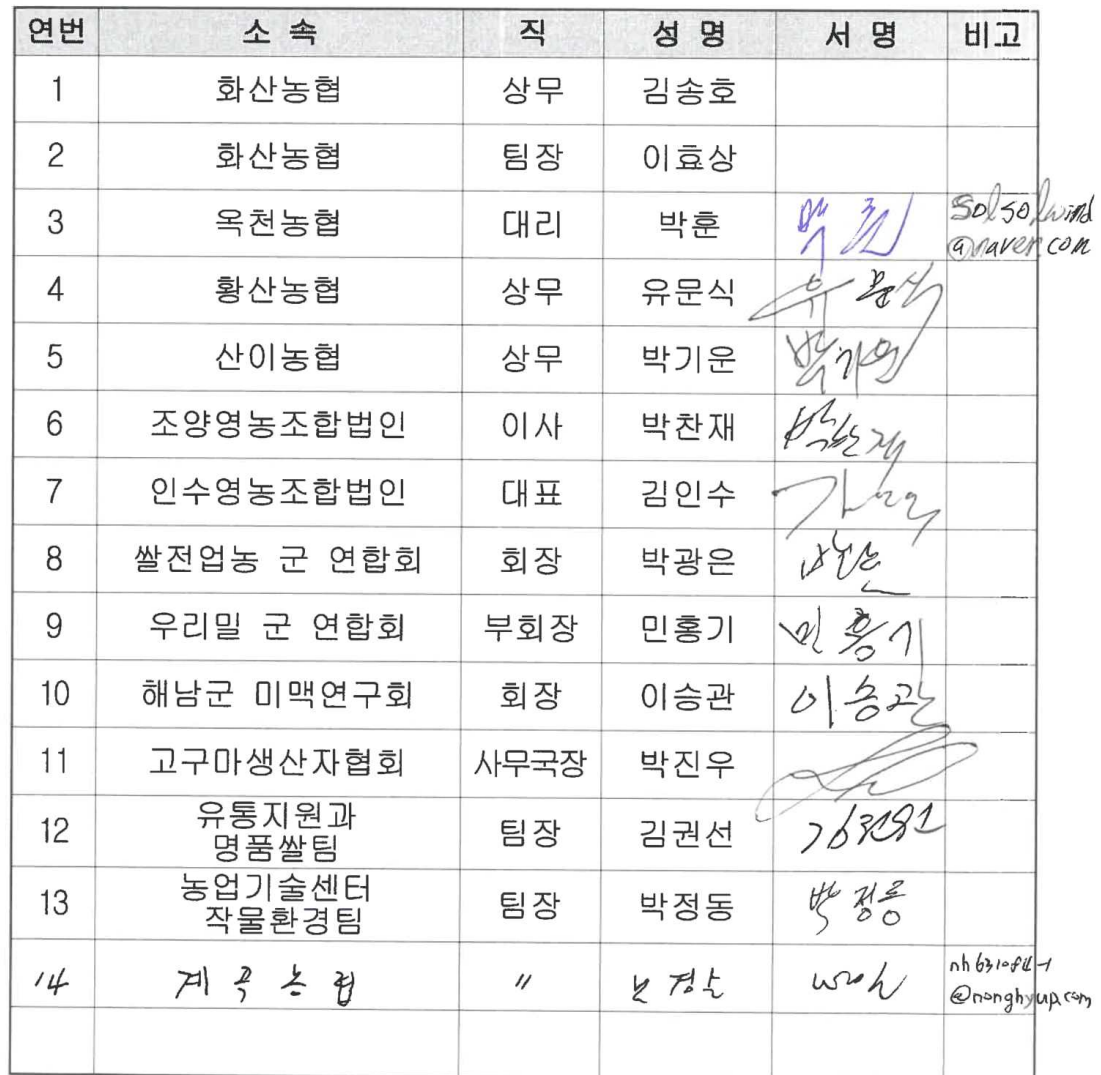 연번 소 속 직 성 명 서 명 비고
1 화산농협 상무 김송호
2 화산농협 팀장 이효상
3 옥천농협 대리 박훈 박 훈 solsolwind
@naver.com
4 황산농협 상무 유문식 유 문식
5 산이농협 상무 박기운 박기운
6 조양영농조합법인 이사 박찬재 박찬재
7 인수영농조합법인 대표 김인수
8 쌀전업농 군 연합회 회장 박광은
9 우리밀 군 연합회 부회장 민홍기 민홍기
10 해남군 미맥연구회 회장 이승관 이승관
11 고구마생산자협회 사무국장 박진우
12 유통지원과
명품쌀팀 팀장 김권선
13 농업기술센터
작물환경팀 팀장 박정동 박정동
14 계곡농협 〃
@nonghyup.com